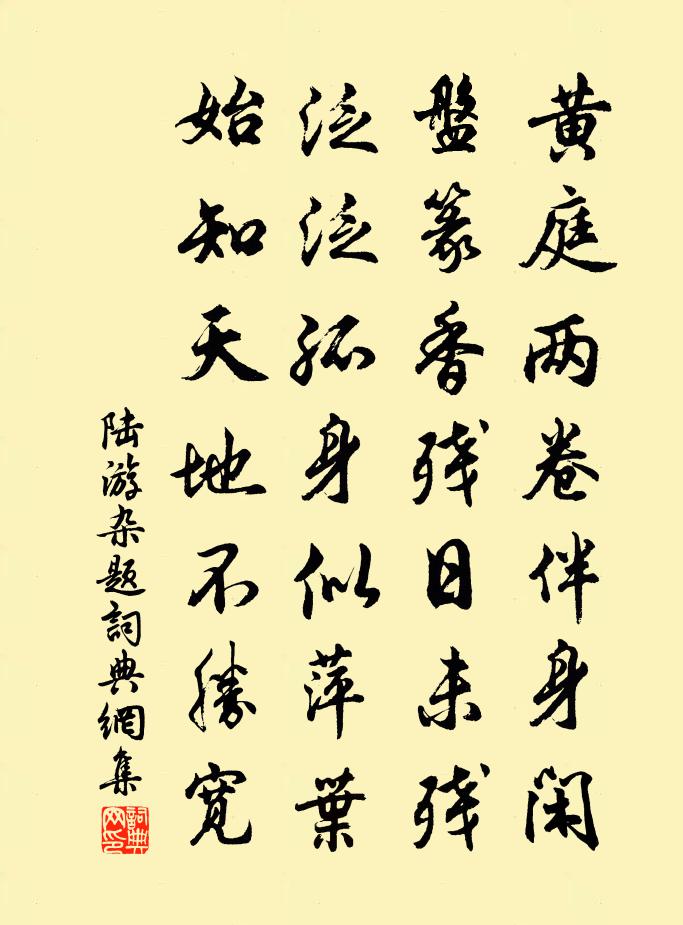 黄庭两卷伴身闲
盤篆香残日未残
泛泛孤身似萍葉
始知天地不勝寛
陆游杂题詞典網集
詞典网印